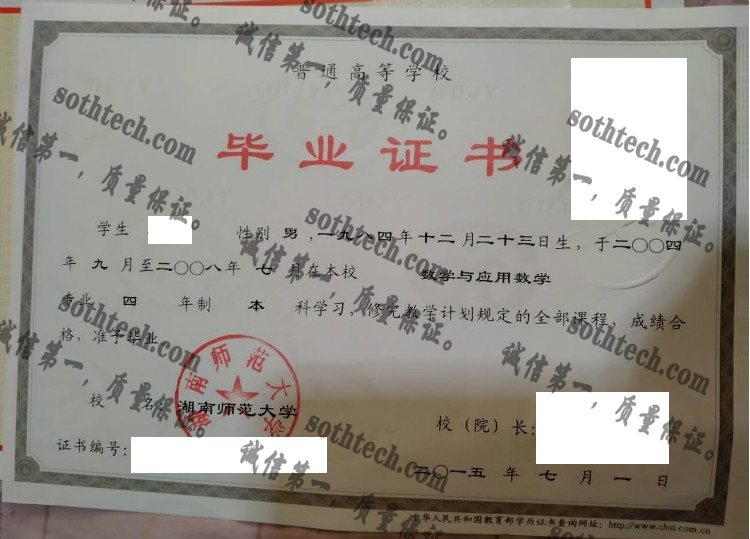 普通高等学校
毕业证书
学生 性别 男 ,一九八四年十二月二十三日生,于二〇〇四
年 九 月至二〇〇八年 七 月在本校 数学与应用数学
专业 四 年制 本 科学习,修完教学计划规定的全部课程,成绩合
格,准予毕业
湖南师范大学
校 名:湖南师范大学
校(院)长:
证书编号:
二〇一五 年 七 月 一 日
中华人民共和国教育部学历证书查询网址:http://www.chsi.com.cn
sothtech.com
诚信第一,质量保证。